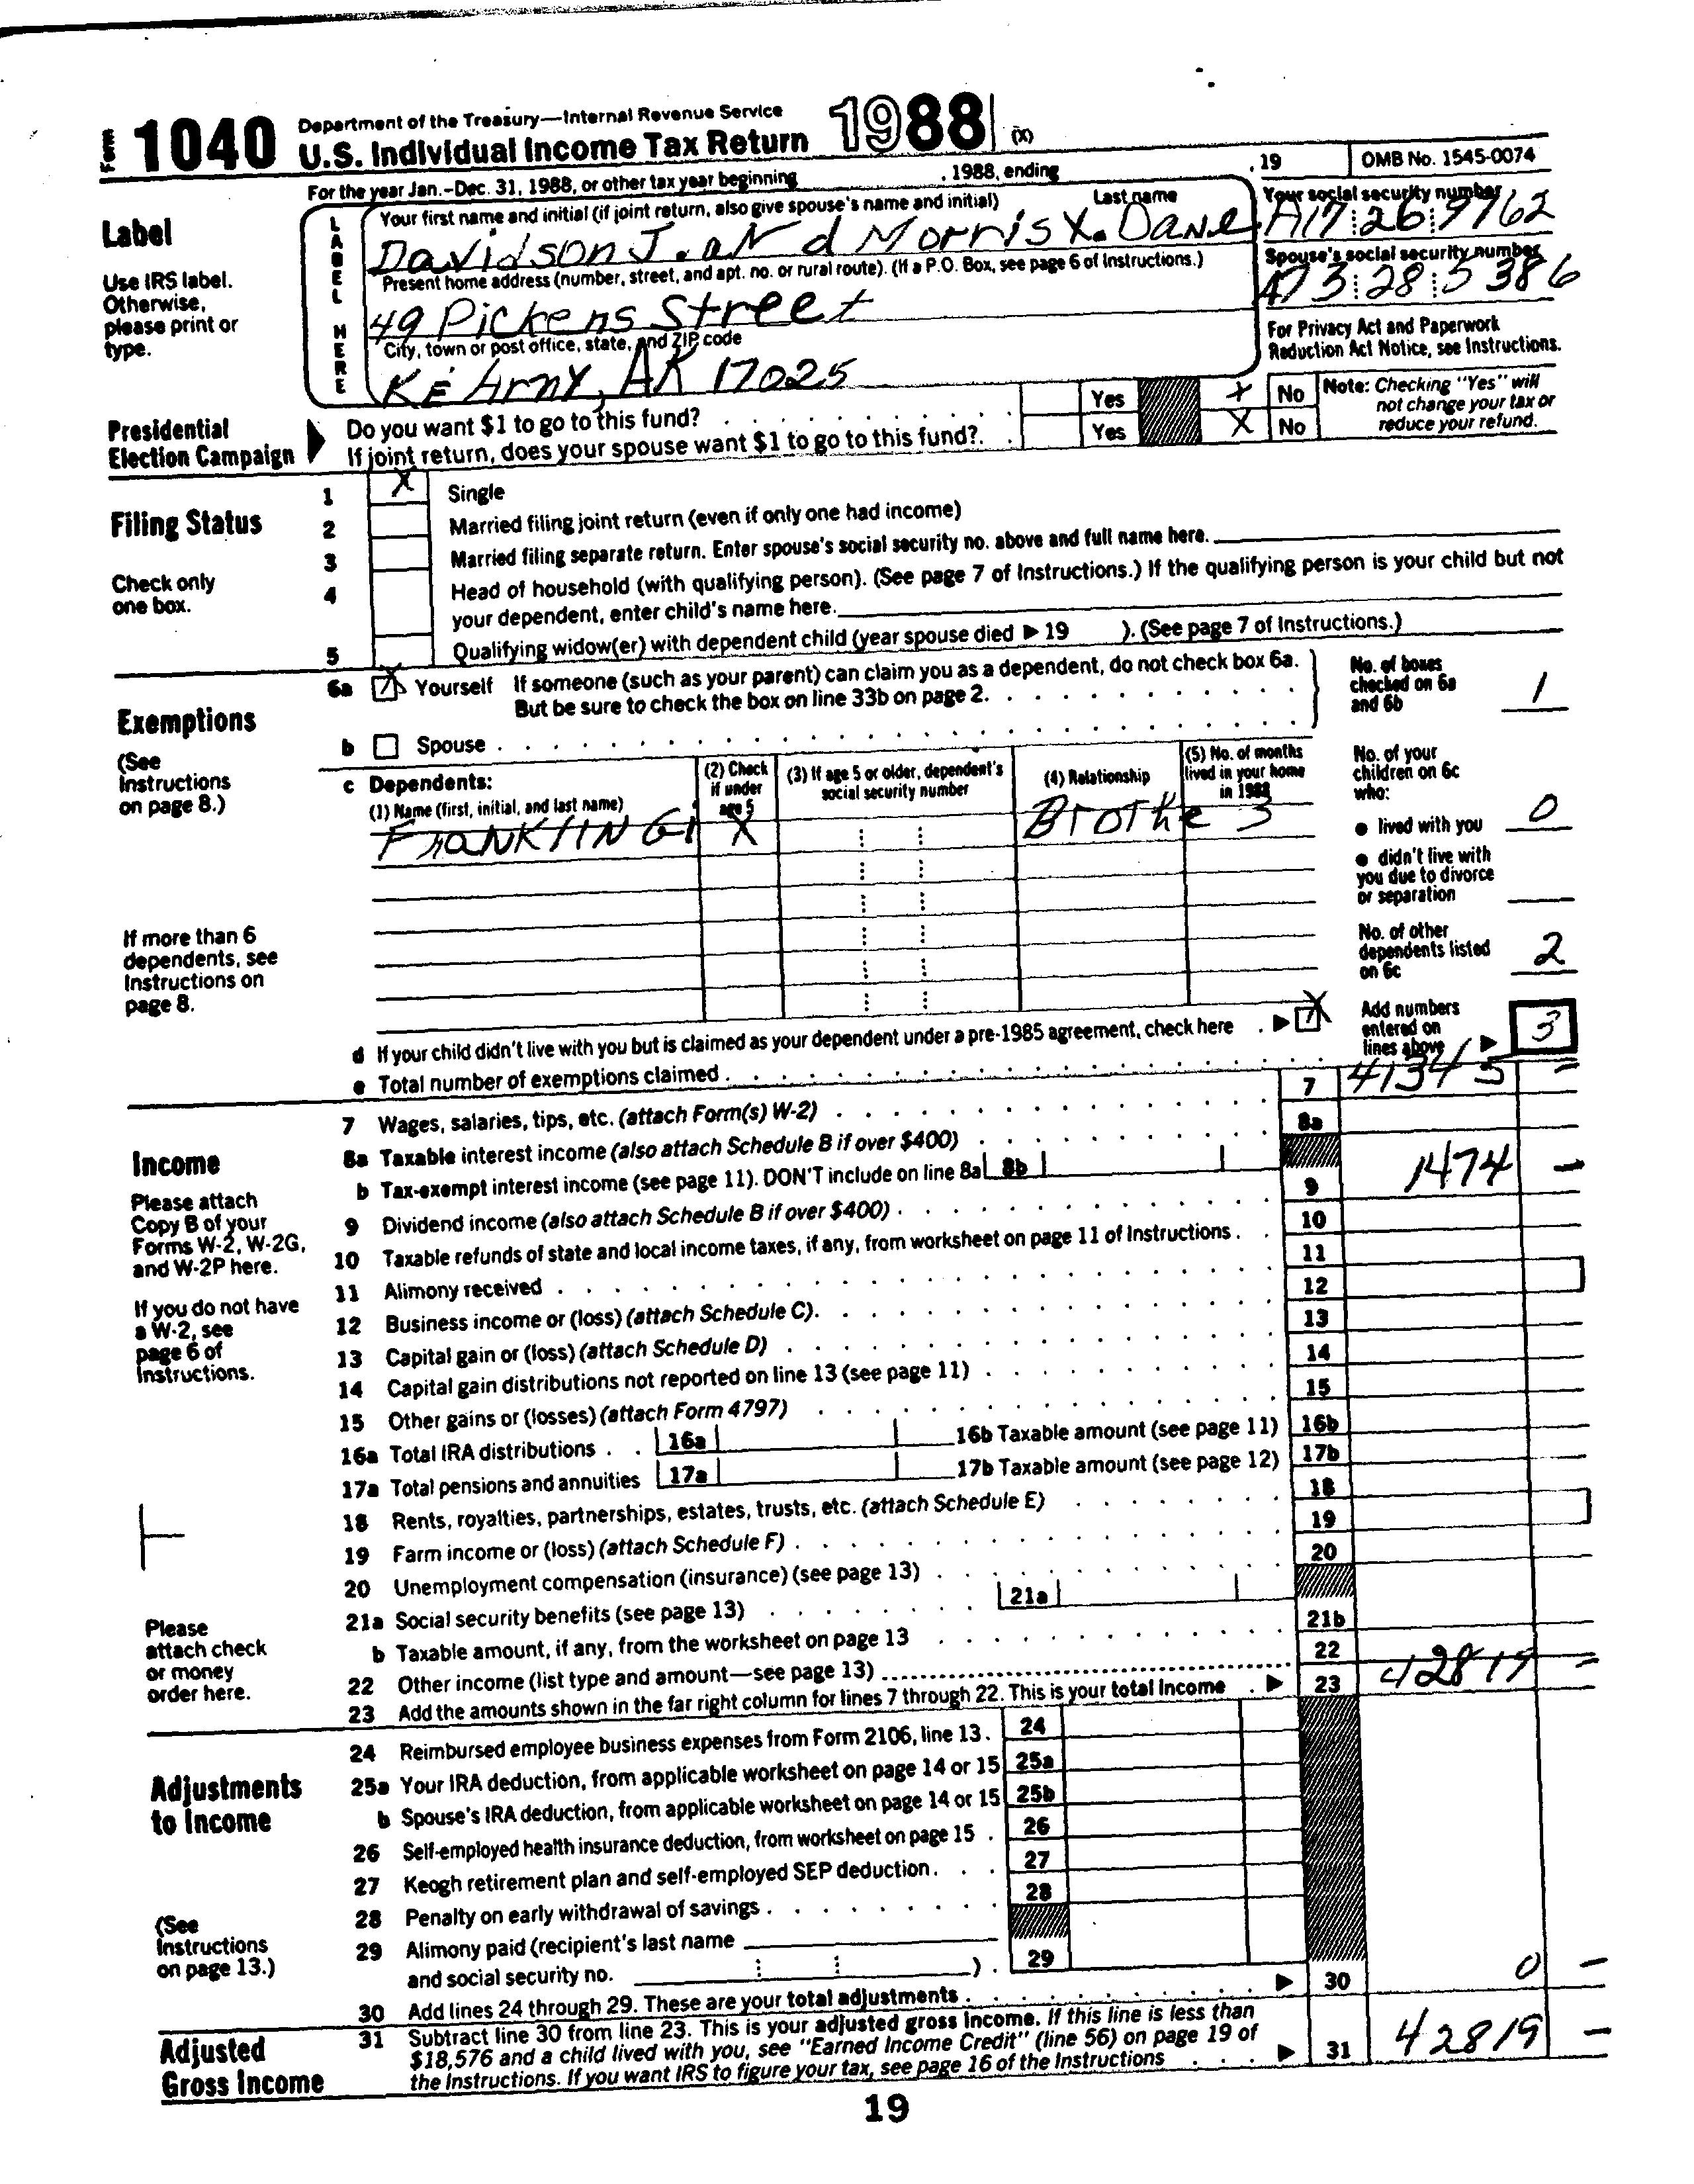 Form 1040 Department of the Treasury—Internal Revenue Service
U.S. Individual Income Tax Return 1988 (X)
For the year Jan.-Dec. 31, 1988, or other tax year beginning , 1988, ending , 19 OMB No. 1545-0074
Label
Use IRS label.
Otherwise,
please print or
type.
LABEL HERE
Your first name and initial (if joint return, also give spouse's name and initial) Last name
Davidson J. aNd Morris X. Dane
Your social security number
A17 26 9762
Present home address (number, street, and apt. no. or rural route). (If a P.O. Box, see page 6 of Instructions.)
49 Pickens Street
Spouse's social security number
473 28 5386
City, town or post office, state, and ZIP code
KEArny, AK 17025
For Privacy Act and Paperwork
Reduction Act Notice, see Instructions.
Presidential
Election Campaign
Do you want $1 to go to this fund? Yes X No
If joint return, does your spouse want $1 to go to this fund? Yes X No
Note: Checking "Yes" will
not change your tax or
reduce your refund.
Filing Status
Check only
one box.
1 X Single
2 Married filing joint return (even if only one had income)
3 Married filing separate return. Enter spouse's social security no. above and full name here.
4 Head of household (with qualifying person). (See page 7 of Instructions.) If the qualifying person is your child but not
your dependent, enter child's name here.
5 Qualifying widow(er) with dependent child (year spouse died ▶ 19 ). (See page 7 of Instructions.)
Exemptions
(See
Instructions
on page 8.)
If more than 6
dependents, see
Instructions on
page 8.
6a X Yourself If someone (such as your parent) can claim you as a dependent, do not check box 6a.
But be sure to check the box on line 33b on page 2.
b Spouse
No. of boxes
checked on 6a
and 6b 1
c Dependents:
(1) Name (first, initial, and last name)
(2) Check
if under
age 5
(3) If age 5 or older, dependent's
social security number
(4) Relationship
(5) No. of months
lived in your home
in 1988
FRANKLIN G X Brothe 3
No. of your
children on 6c
who:
● lived with you 0
● didn't live with
you due to divorce
or separation
No. of other
dependents listed
on 6c 2
d If your child didn't live with you but is claimed as your dependent under a pre-1985 agreement, check here ▶ X
e Total number of exemptions claimed
Add numbers
entered on
lines above ▶ 3
Income
Please attach
Copy B of your
Forms W-2, W-2G,
and W-2P here.
If you do not have
a W-2, see
page 6 of
Instructions.
Please
attach check
or money
order here.
7 Wages, salaries, tips, etc. (attach Form(s) W-2) 7 41345 –
8a Taxable interest income (also attach Schedule B if over $400) 8a
b Tax-exempt interest income (see page 11). DON'T include on line 8a 8b
9 Dividend income (also attach Schedule B if over $400) 9 1474 –
10 Taxable refunds of state and local income taxes, if any, from worksheet on page 11 of Instructions. 10
11 Alimony received 11
12 Business income or (loss) (attach Schedule C). 12
13 Capital gain or (loss) (attach Schedule D) 13
14 Capital gain distributions not reported on line 13 (see page 11) 14
15 Other gains or (losses) (attach Form 4797) 15
16a Total IRA distributions 16a 16b Taxable amount (see page 11) 16b
17a Total pensions and annuities 17a 17b Taxable amount (see page 12) 17b
18 Rents, royalties, partnerships, estates, trusts, etc. (attach Schedule E) 18
19 Farm income or (loss) (attach Schedule F) 19
20 Unemployment compensation (insurance) (see page 13) 20
21a Social security benefits (see page 13) 21a
b Taxable amount, if any, from the worksheet on page 13 21b
22 Other income (list type and amount—see page 13) 22
23 Add the amounts shown in the far right column for lines 7 through 22. This is your total income ▶ 23 42819 –
Adjustments
to Income
(See
Instructions
on page 13.)
24 Reimbursed employee business expenses from Form 2106, line 13. 24
25a Your IRA deduction, from applicable worksheet on page 14 or 15 25a
b Spouse's IRA deduction, from applicable worksheet on page 14 or 15 25b
26 Self-employed health insurance deduction, from worksheet on page 15 26
27 Keogh retirement plan and self-employed SEP deduction. 27
28 Penalty on early withdrawal of savings 28
29 Alimony paid (recipient's last name
and social security no. ). 29
30 Add lines 24 through 29. These are your total adjustments ▶ 30 0 –
Adjusted
Gross Income
31 Subtract line 30 from line 23. This is your adjusted gross income. If this line is less than
$18,576 and a child lived with you, see "Earned Income Credit" (line 56) on page 19 of
the Instructions. If you want IRS to figure your tax, see page 16 of the Instructions ▶ 31 42819 –
19